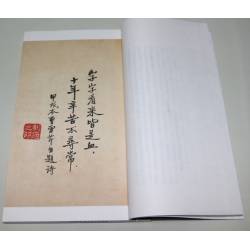 字字看来皆是血
十年辛苦不寻常
甲戌本曹雪芹自题诗